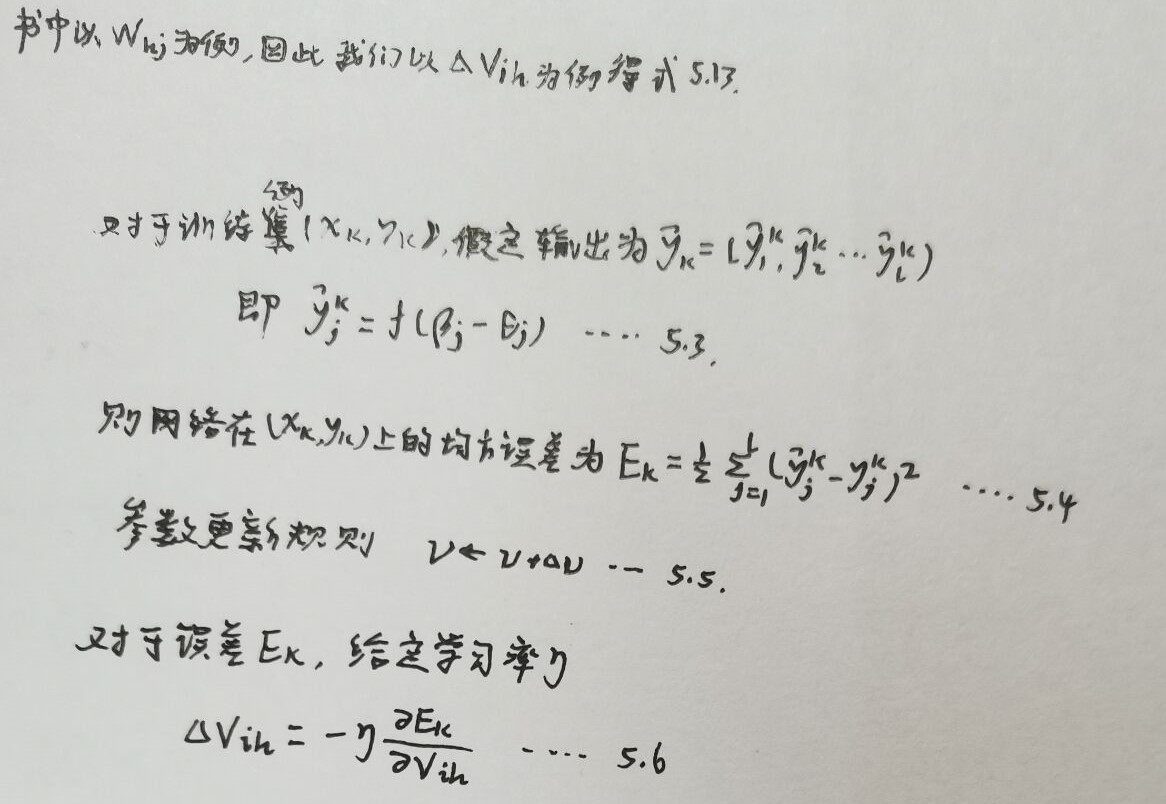 书中以 Whj 为例,因此我们以 ΔVih 为例得式 5.13.
对于训练例(xk, yk),假定输出为 ŷk = (ŷ₁ᵏ, ŷ₂ᵏ … ŷₗᵏ)
即 ŷⱼᵏ = f(βⱼ - θⱼ) ···· 5.3.
则网络在(xk, yk)上的均方误差为 Ek = ½ Σⱼ₌₁ˡ (ŷⱼᵏ - yⱼᵏ)² ···· 5.4
参数更新规则 ν ← ν + Δν ··· 5.5.
对于误差 Ek, 给定学习率 η
ΔVih = -η ∂Ek/∂Vih ···· 5.6